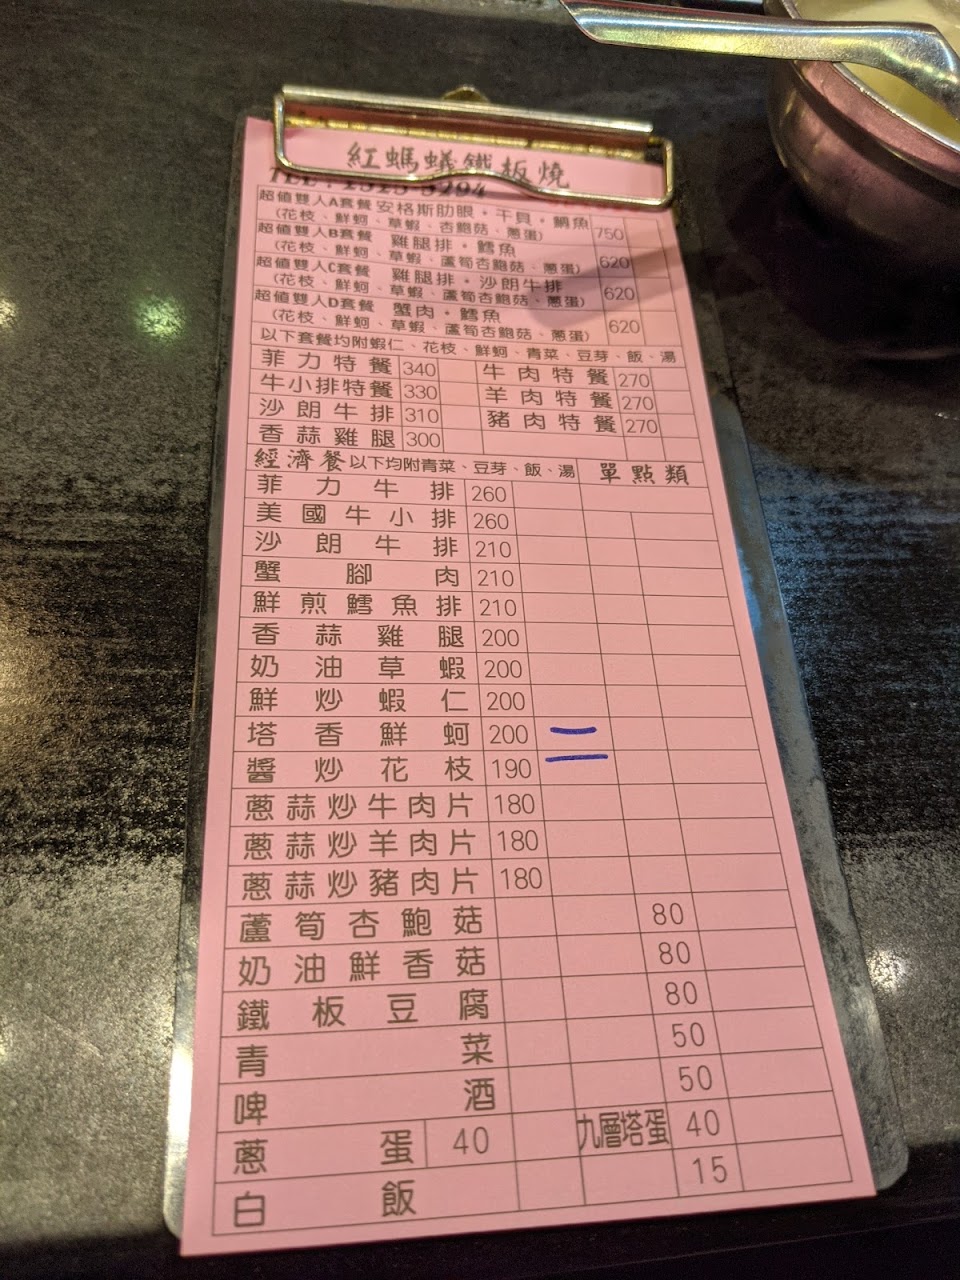 紅螞蟻鐵板燒
TEL：2323-5294
超值雙人A套餐 安格斯肋眼・干貝・鯛魚 750
(花枝、鮮蚵、草蝦、杏鮑菇、蔥蛋)
超值雙人B套餐 雞腿排・鱈魚 620
(花枝、鮮蚵、草蝦、蘆筍杏鮑菇、蔥蛋)
超值雙人C套餐 雞腿排・沙朗牛排 620
(花枝、鮮蚵、草蝦、蘆筍杏鮑菇、蔥蛋)
超值雙人D套餐 蟹肉・鱈魚 620
(花枝、鮮蚵、草蝦、蘆筍杏鮑菇、蔥蛋)
以下套餐均附蝦仁、花枝、鮮蚵、青菜、豆芽、飯、湯
菲力特餐 340 牛肉特餐 270
牛小排特餐 330 羊肉特餐 270
沙朗牛排 310 豬肉特餐 270
香蒜雞腿 300
經濟餐 以下均附青菜、豆芽、飯、湯 單點類
菲力牛排 260
美國牛小排 260
沙朗牛排 210
蟹腳肉 210
鮮煎鱈魚排 210
香蒜雞腿 200
奶油草蝦 200
鮮炒蝦仁 200
塔香鮮蚵 200 一
醬炒花枝 190 一
蔥蒜炒牛肉片 180
蔥蒜炒羊肉片 180
蔥蒜炒豬肉片 180
蘆筍杏鮑菇 80
奶油鮮香菇 80
鐵板豆腐 80
青菜 50
啤酒 50
蔥蛋 40 九層塔蛋 40
白飯 15